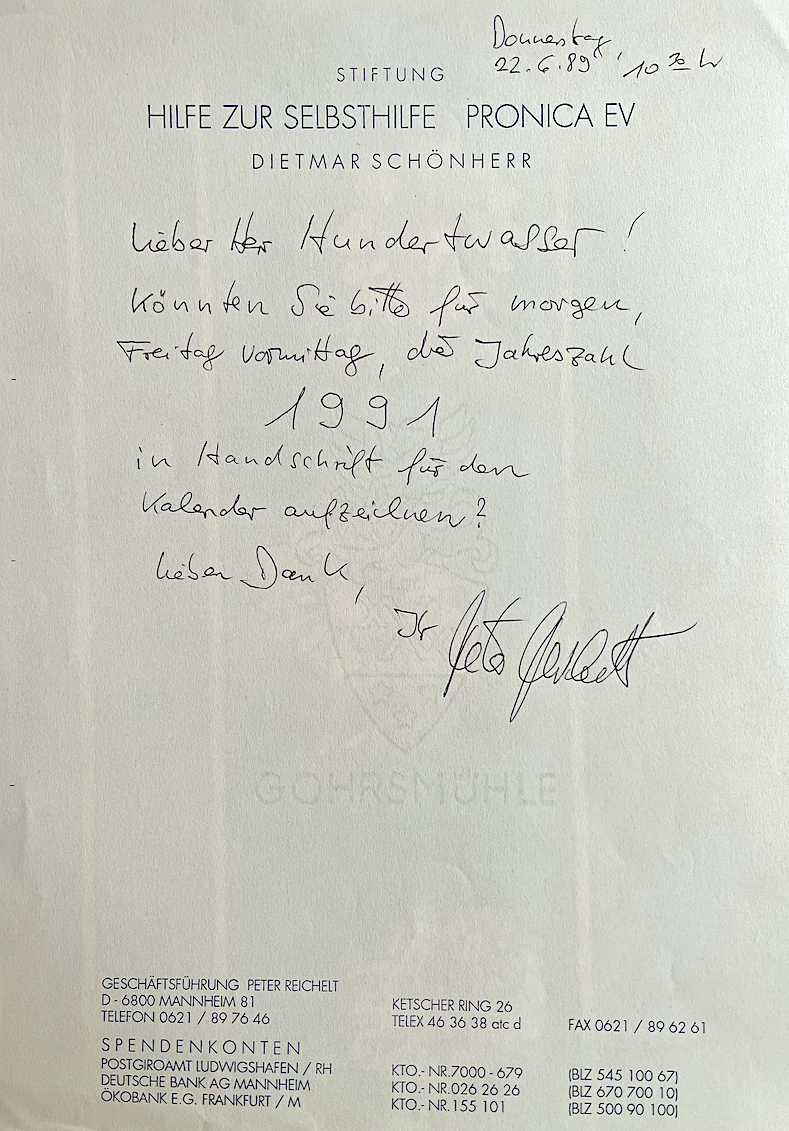 Donnerstag,
22.6.89 10 30 h
STIFTUNG
HILFE ZUR SELBSTHILFE PRONICA EV
DIETMAR SCHÖNHERR
Lieber Herr Hundertwasser!
Könnten Sie bitte für morgen,
Freitag vormittag, die Jahreszahl
1991
in Handschrift für den
Kalender aufzeichnen?
Lieben Dank,
Ihr Peter Reichelt
GOHRSMÜHLE
GESCHÄFTSFÜHRUNG PETER REICHELT
D - 6800 MANNHEIM 81
TELEFON 0621 / 89 76 46
KETSCHER RING 26
TELEX 46 36 38 atc d
FAX 0621 / 89 62 61
SPENDENKONTEN
POSTGIROAMT LUDWIGSHAFEN / RH KTO.- NR. 7000 - 679 (BLZ 545 100 67)
DEUTSCHE BANK AG MANNHEIM KTO.- NR. 026 26 26 (BLZ 670 700 10)
ÖKOBANK E.G. FRANKFURT / M KTO.- NR. 155 101 (BLZ 500 90 100)